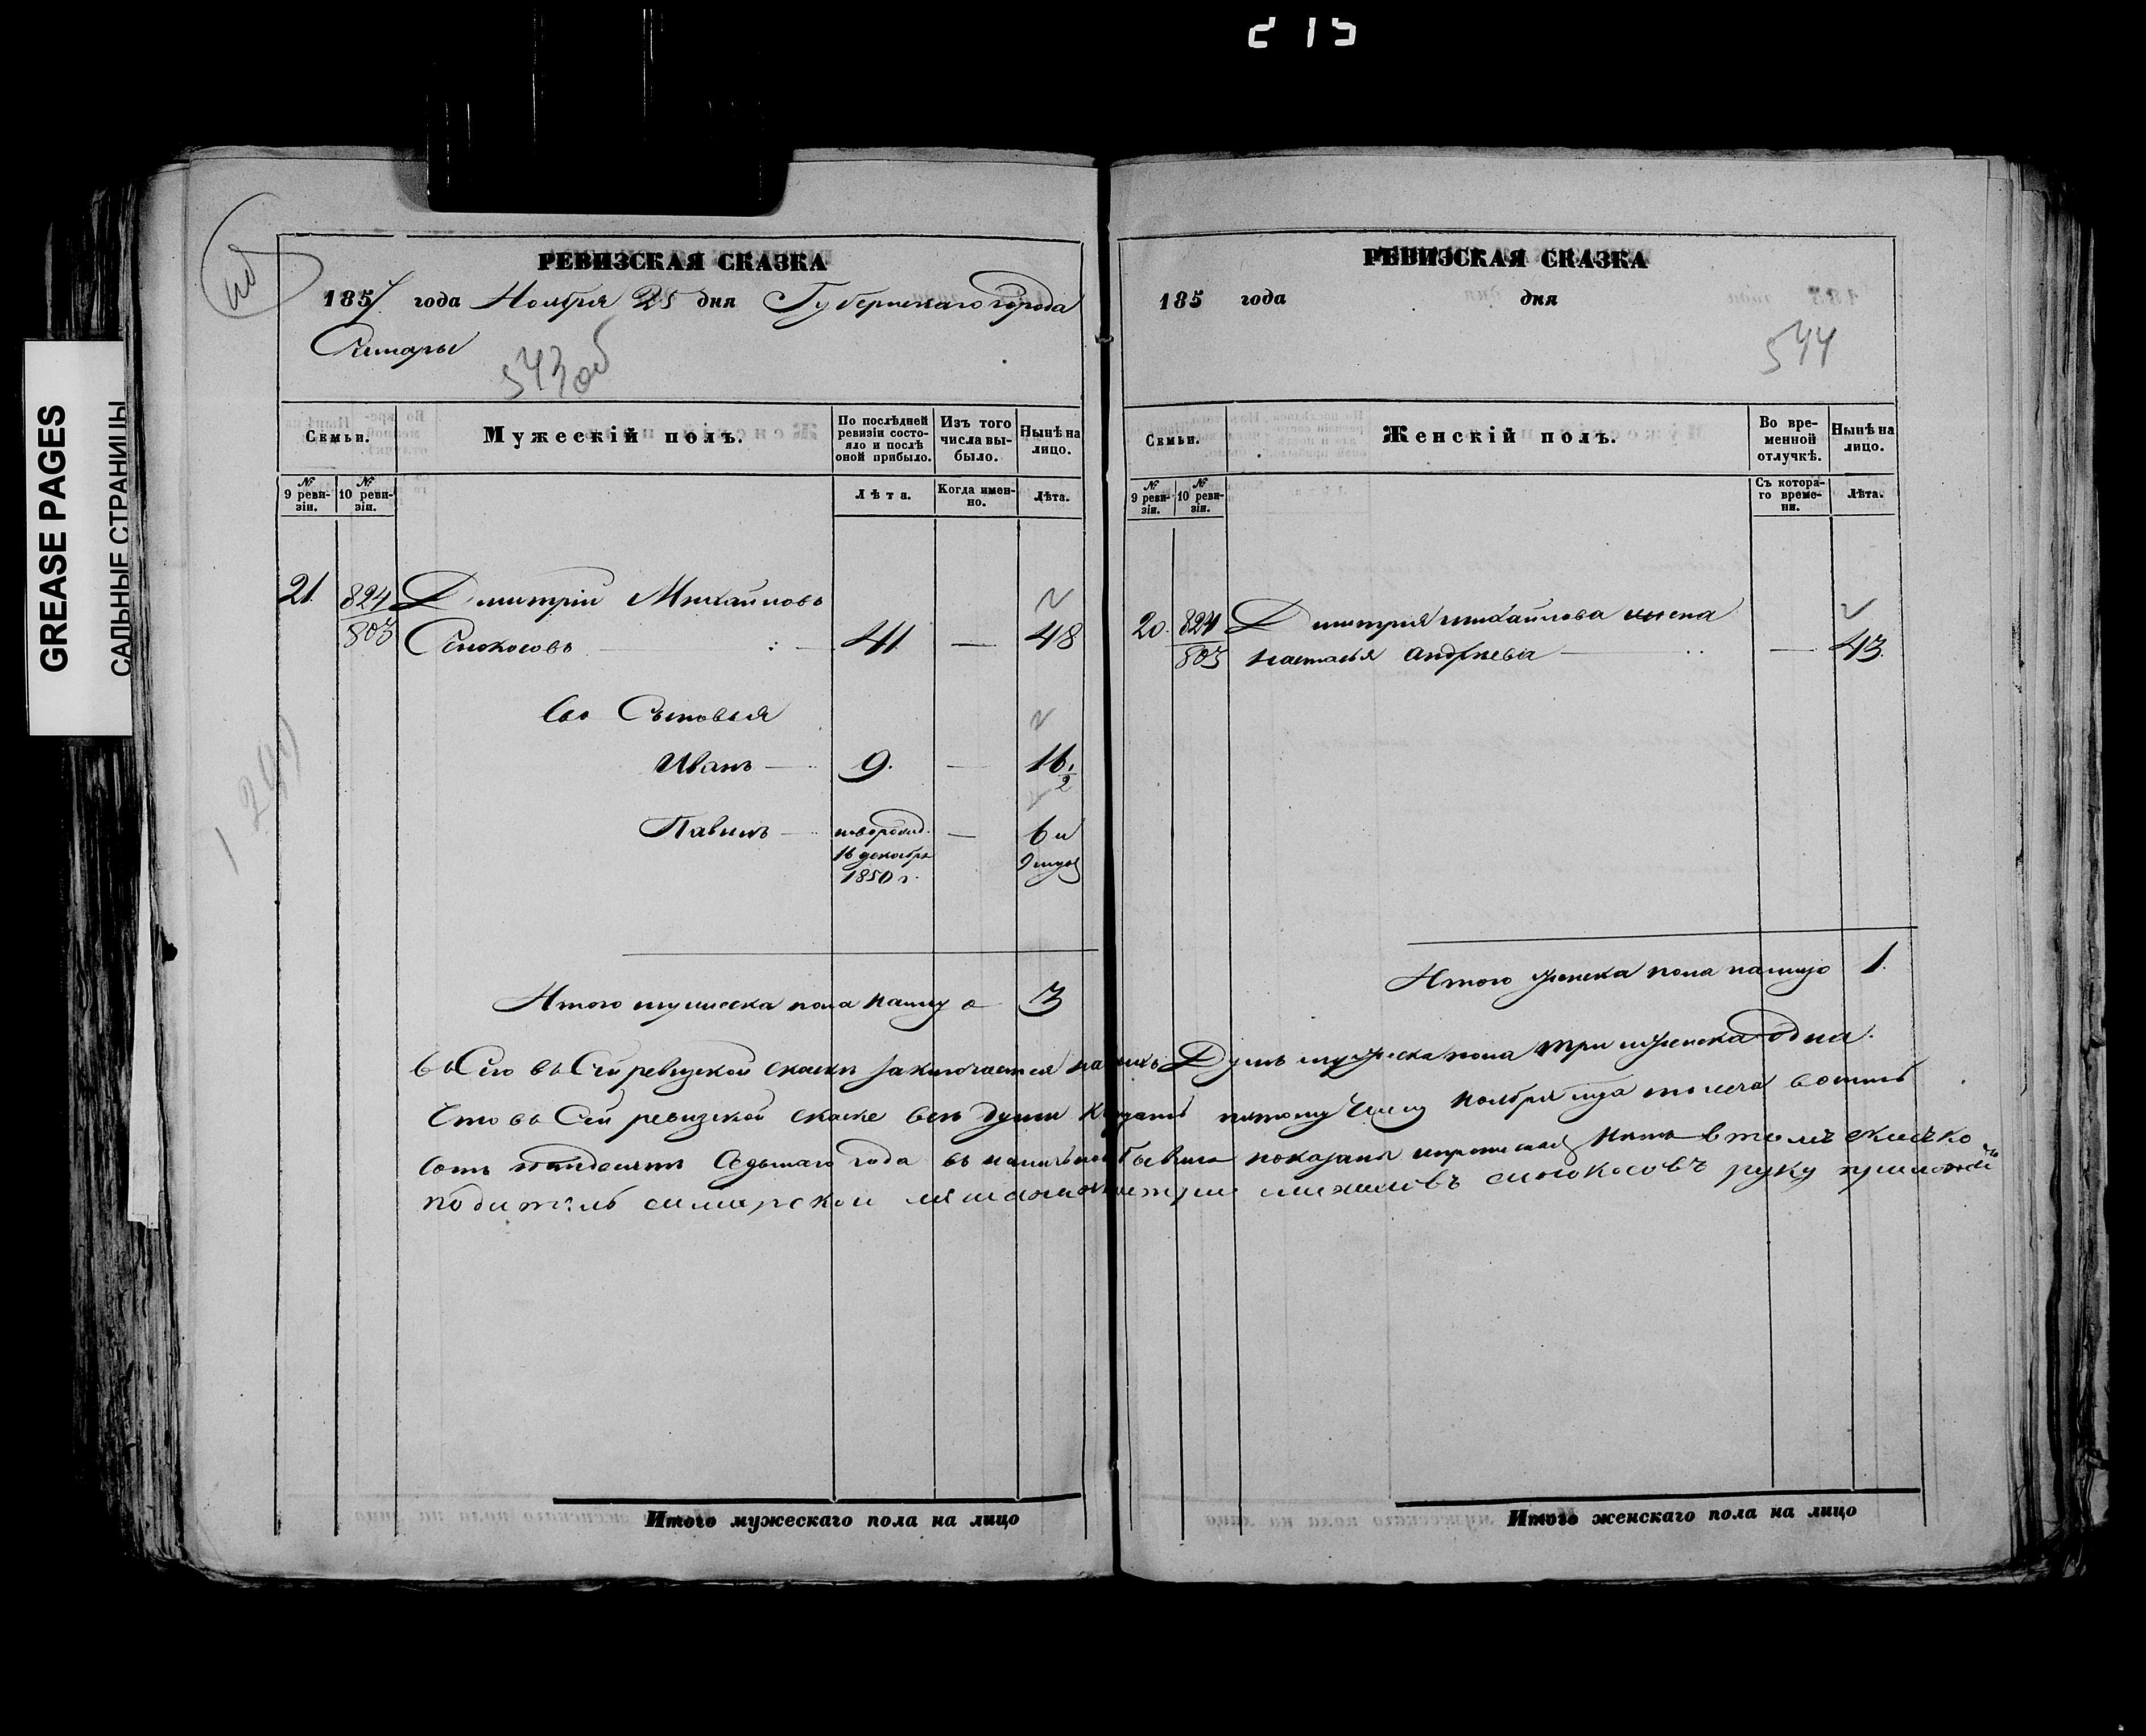 215
GREASE PAGES
САЛЬНЫЕ СТРАНИЦЫ
РЕВИЗСКАЯ СКАЗКА
1857 года Ноября 25 дня Губернскаго города
Самары
543об
Семьи.
Мужескій полъ.
По послѣдней ревизіи состояло и послѣ оной прибыло.
Изъ того числа выбыло.
Нынѣ на лицо.
№ 9 ревизіи.
№ 10 ревизіи.
Лѣта.
Когда именно.
Лѣта.
21. 824/803 Дмитрій Михайловъ
Сенокосовъ 41. — 48
Ево Сыновья
Иванъ — 9. — 16 1/2
Павилъ — новорожд. — 6 и
16 декабря 9 мѣся
1850 г.
Итого мужеска пола налицо 3
Итого мужескаго пола на лицо
РЕВИЗСКАЯ СКАЗКА
185 года дня
544
Семьи.
Женскій полъ.
Во временной отлучкѣ.
Нынѣ на лицо.
№ 9 ревизіи.
№ 10 ревизіи.
Съ котораго времени.
Лѣта.
20. 824/803 Дмитрія Михайлова жена
Настасья Андреева — — 43.
Итого женска пола налицо 1.
Итого женскаго пола на лицо
въ Сей ревизской скаскѣ заключается Душъ мужеска пола три женска одна.
Что въ Сей ревизской скаске все души пятому числу Ноября мца тысяча восемь
сотъ пятдесятъ Седьмаго года въ показаны и прописныхъ нѣтъ в томъ скаско
податель самарской мещанинъ Дмитрий михаиловъ сенокосовъ руку приложилъ